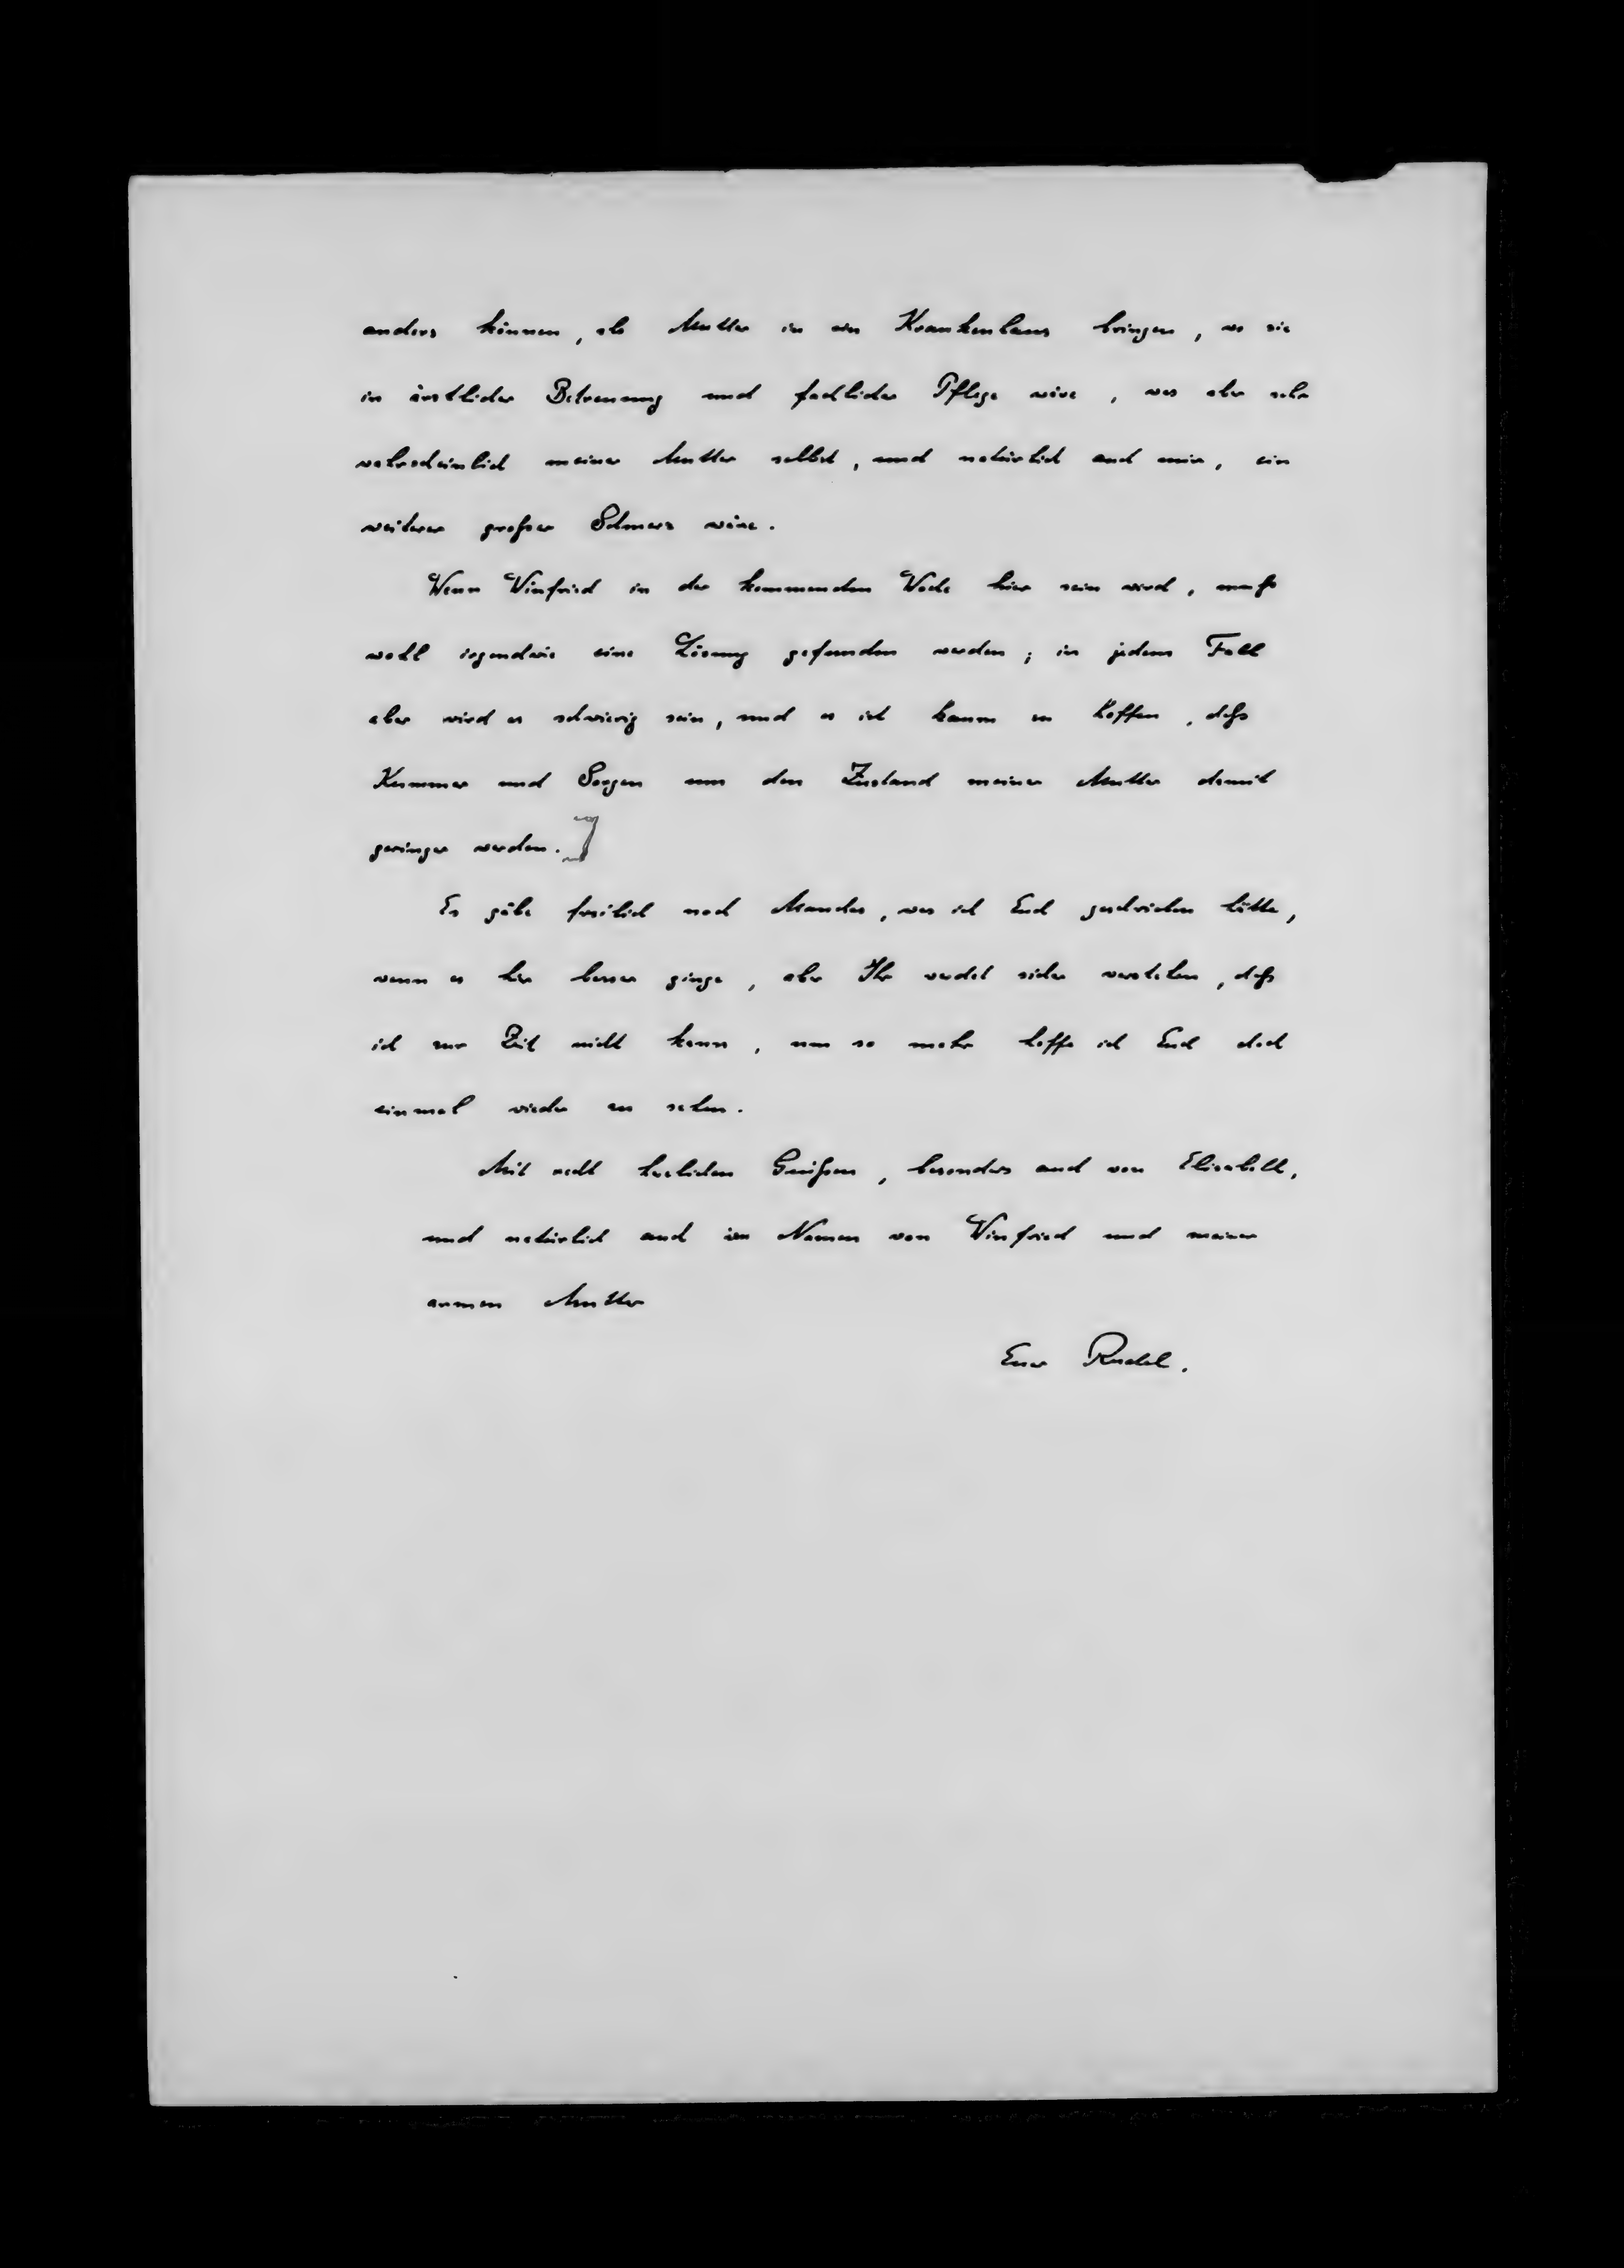 anders können, als Mutter in ein Krankenhaus bringen, wo sie
in ärztlicher Betreuung und fachlicher Pflege wäre, was aber sehr
wahrscheinlich meiner Mutter selbst, und natürlich auch mir, ein
weiterer großer Schmerz wäre.
Wenn Winfried in der kommenden Woche hier sein wird, muß
wohl irgendwie eine Lösung gefunden werden; in jedem Fall
aber wird es schwierig sein, und es ist kaum zu hoffen, daß
Kummer und Sorgen um den Zustand meiner Mutter damit
geringer werden.]
Es gäbe freilich noch Manches, was ich Euch geschrieben hätte,
wenn es hier besser ginge, aber Ihr werdet sicher verstehen, daß
ich zur Zeit nicht kann, um so mehr hoffe ich Euch doch
einmal wieder zu sehen.
Mit recht herzlichen Grüßen, besonders auch von Elisabeth,
und natürlich auch im Namen von Winfried und meiner
armen Mutter
Euer Rudel.